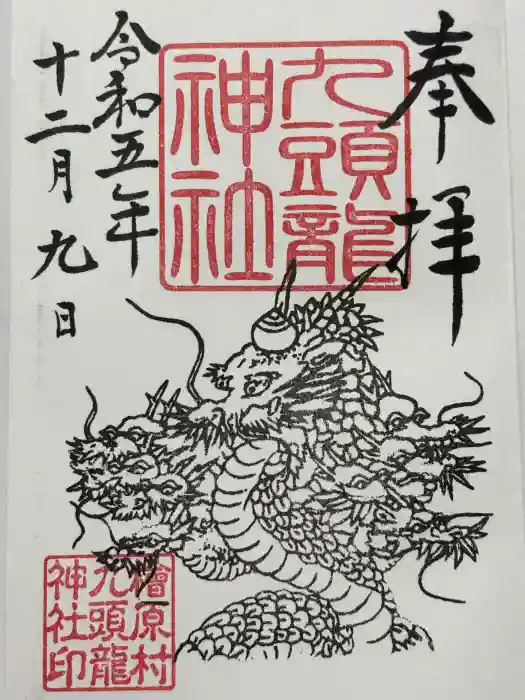 奉拝
九頭龍
神社
令和五年
十二月九日
檜原村
九頭龍
神社印